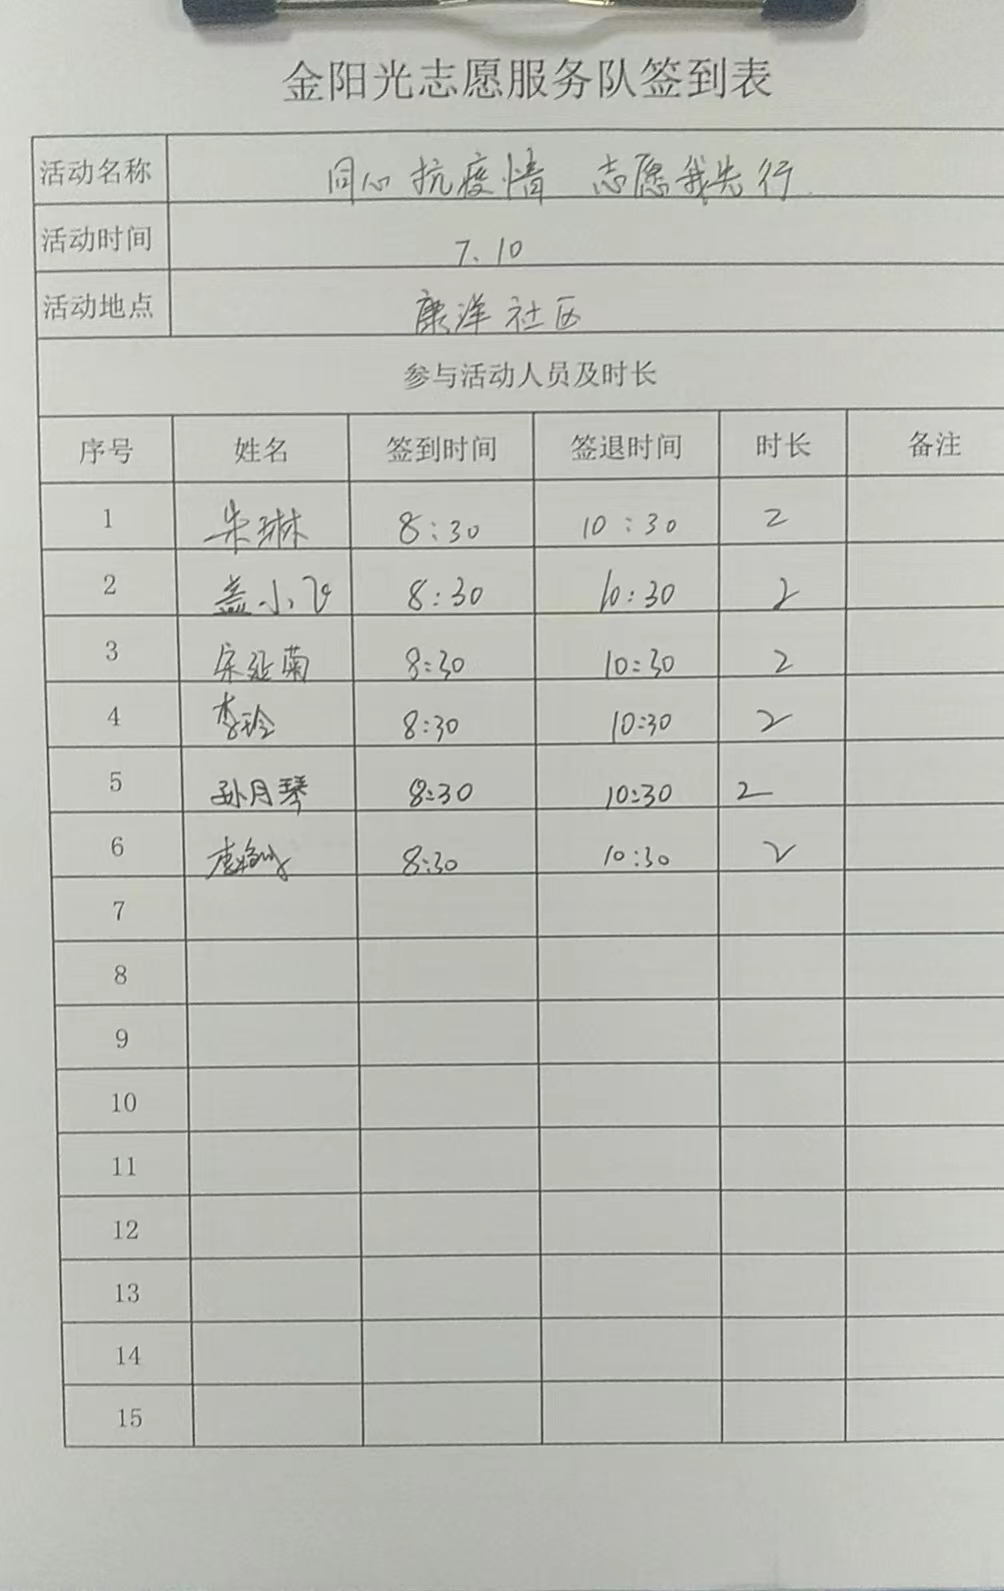 金阳光志愿服务队签到表
活动名称 同心抗疫情 志愿我先行
活动时间 7.10
活动地点 康洋社区
参与活动人员及时长
序号 姓名 签到时间 签退时间 时长 备注
1 朱琳 8:30 10:30 2
2 盖小飞 8:30 10:30 2
3 宋延菊 8:30 10:30 2
4 李玲 8:30 10:30 2
5 孙月琴 8:30 10:30 2
6 8:30 10:30 2
7
8
9
10
11
12
13
14
15